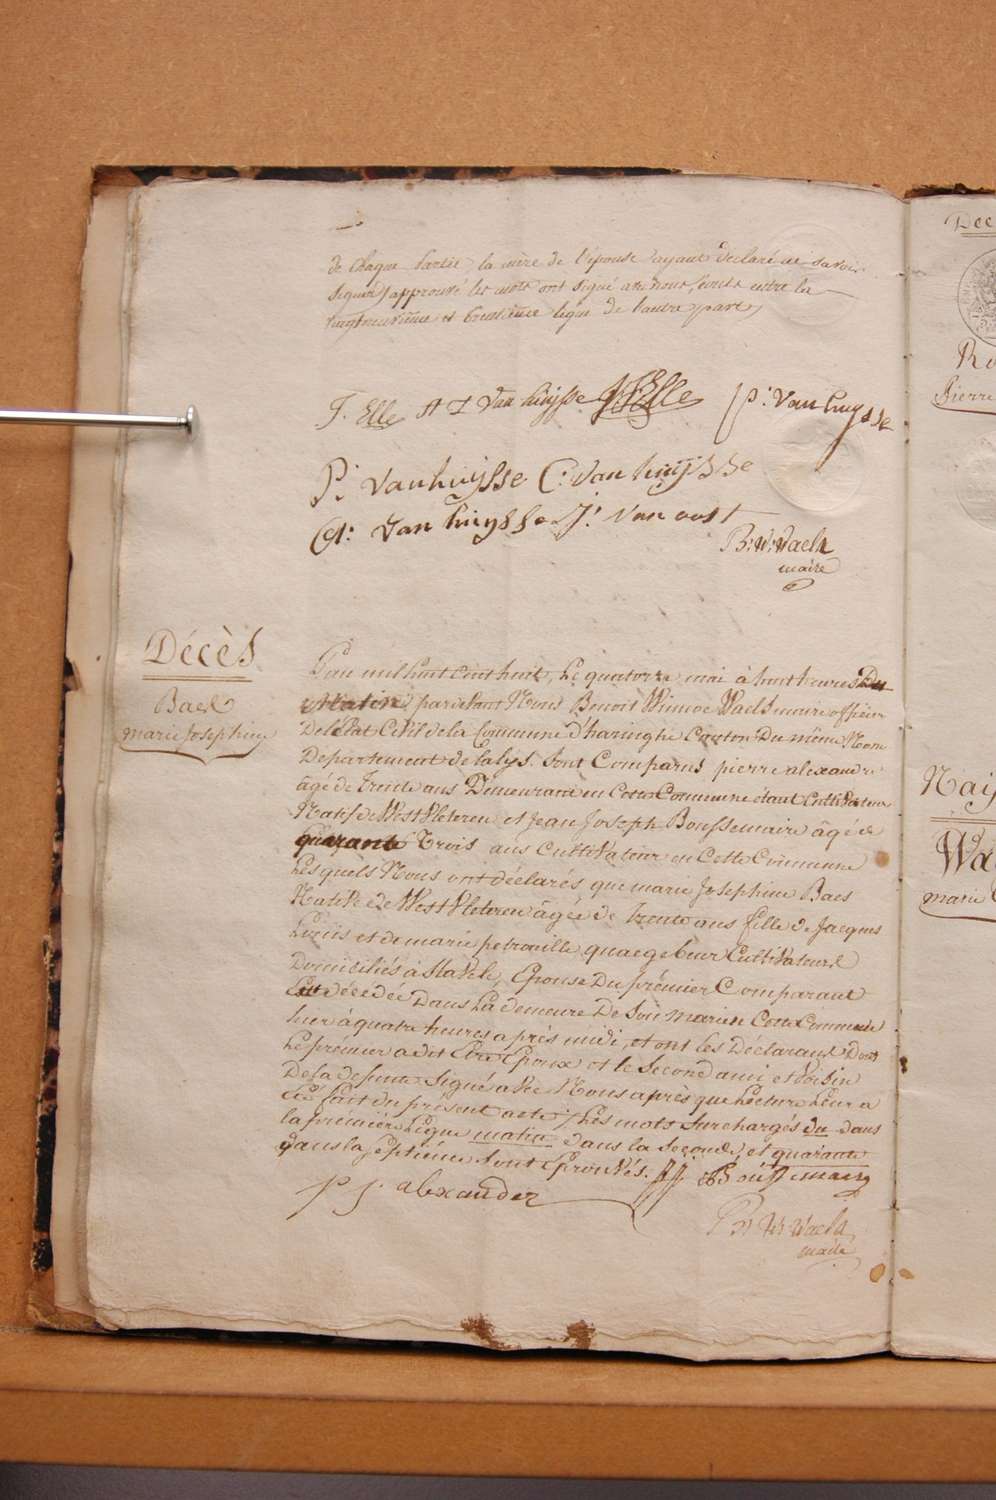 de chaque partie, la mère de l'épouse ayant declaré ne savoir
signer / approuvé les mots ont signé avec nous, écrits entre la
vingtneuvième et trentième ligne de l'autre part,
F. Elle A I Vanhuysse J F Elle p: vanhuysse
P: vanhuysse C: vanhuysse
vanhuysse J: van oost
B: W: Waels
maire
Décès
Baes
marie josephine
L'an mil huit cent huit, le quatorze mai à huit heures Du
Matin, pardevant Nous Benoit Winnoc Waels maire officier
De l'état Civil de la Commune d'haringhe Canton Du même Nom
Departement de la lys. Sont Comparus pierre alexandre
âgé de trente ans Demeurant en Cette Commune étant Cultivateur
Natif de WestVleteren et Jean Joseph Boussemaire âgé de
quarante trois ans Cultivateur en Cette Commune
Lesquels Nous ont déclarés que marie Josephine Baes
Native de WestVleteren âgée de trente ans fille de Jacques
Louis et de marie petronille quaegebeur Cultivateurs
Domiciliés à Stavele, Epouse Du prémier Comparant
Est décedée Dans La demeure De Son Mari en Cette Commune
hier à quatre heures après midi, et ont les Déclarans Dont
Le prémier a dit Etre Epoux et le Second ami et Voisin
De la defunte Signé avec Nous après que Lecture Leur a
été fait du présent acte / Les mots Surchargés du dans
la prémière Ligne matin dans la Seconde, et quarante
dans la Septième Sont approuvés. JJ Boussemaire
p j. alexander
B: W: Waels
maire
Déc
Pierre
Nais
Wa
marie